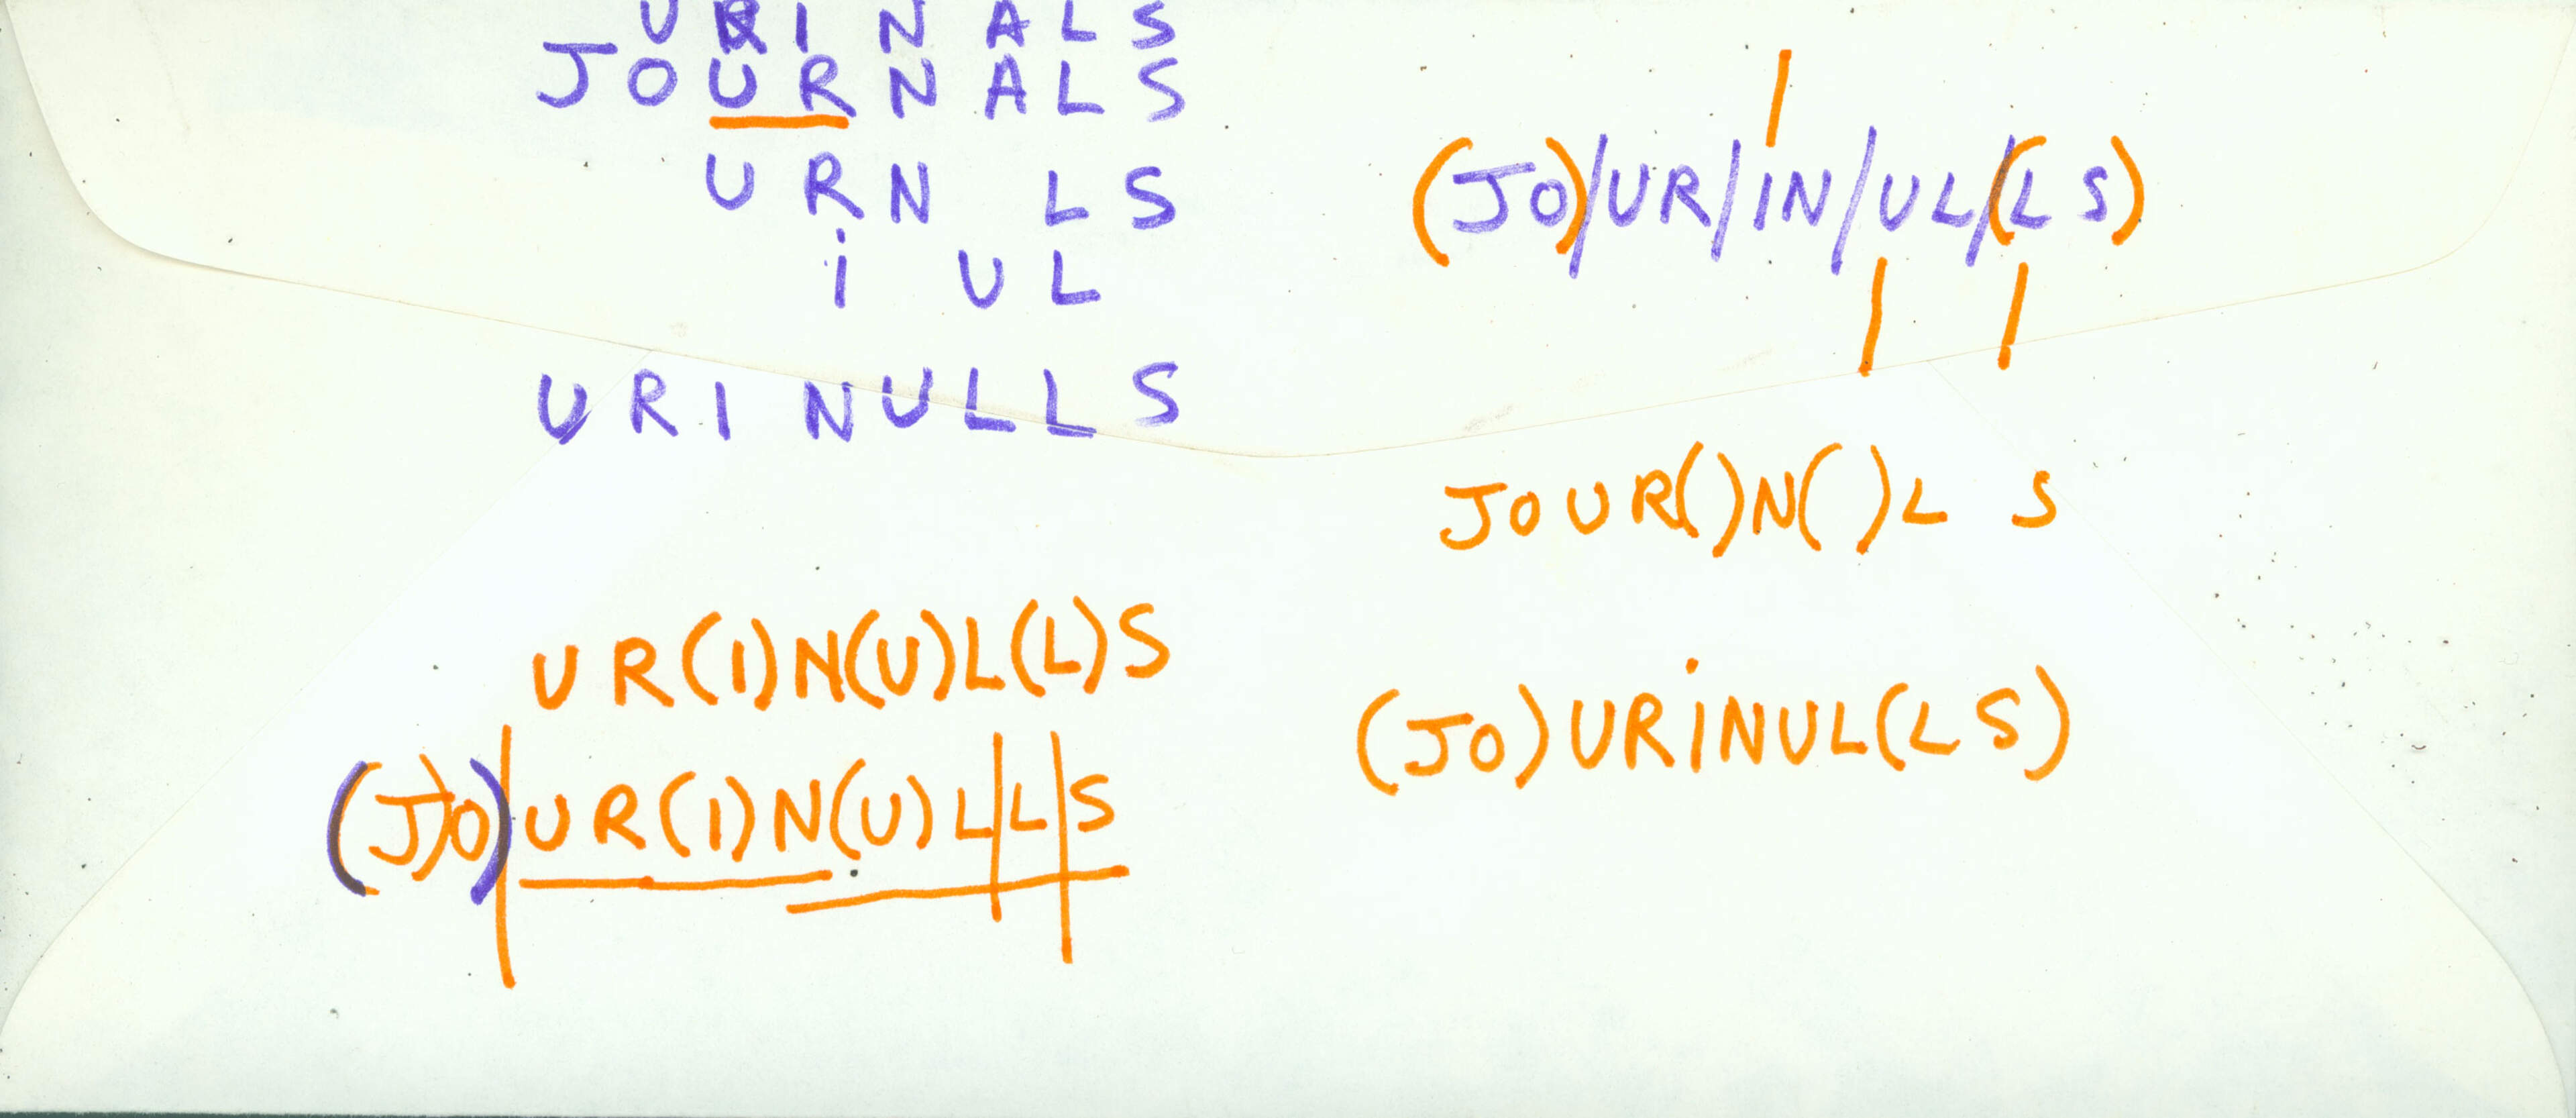 URINALS
JOURNALS
URN LS
i UL
URINULLS
UR(I)N(U)L(L)S
(J)O)|UR(I)N(U)L|L|S
(JO)/UR/IN/UL/(LS)
JOUR()N()L S
(JO)URiNUL(LS)